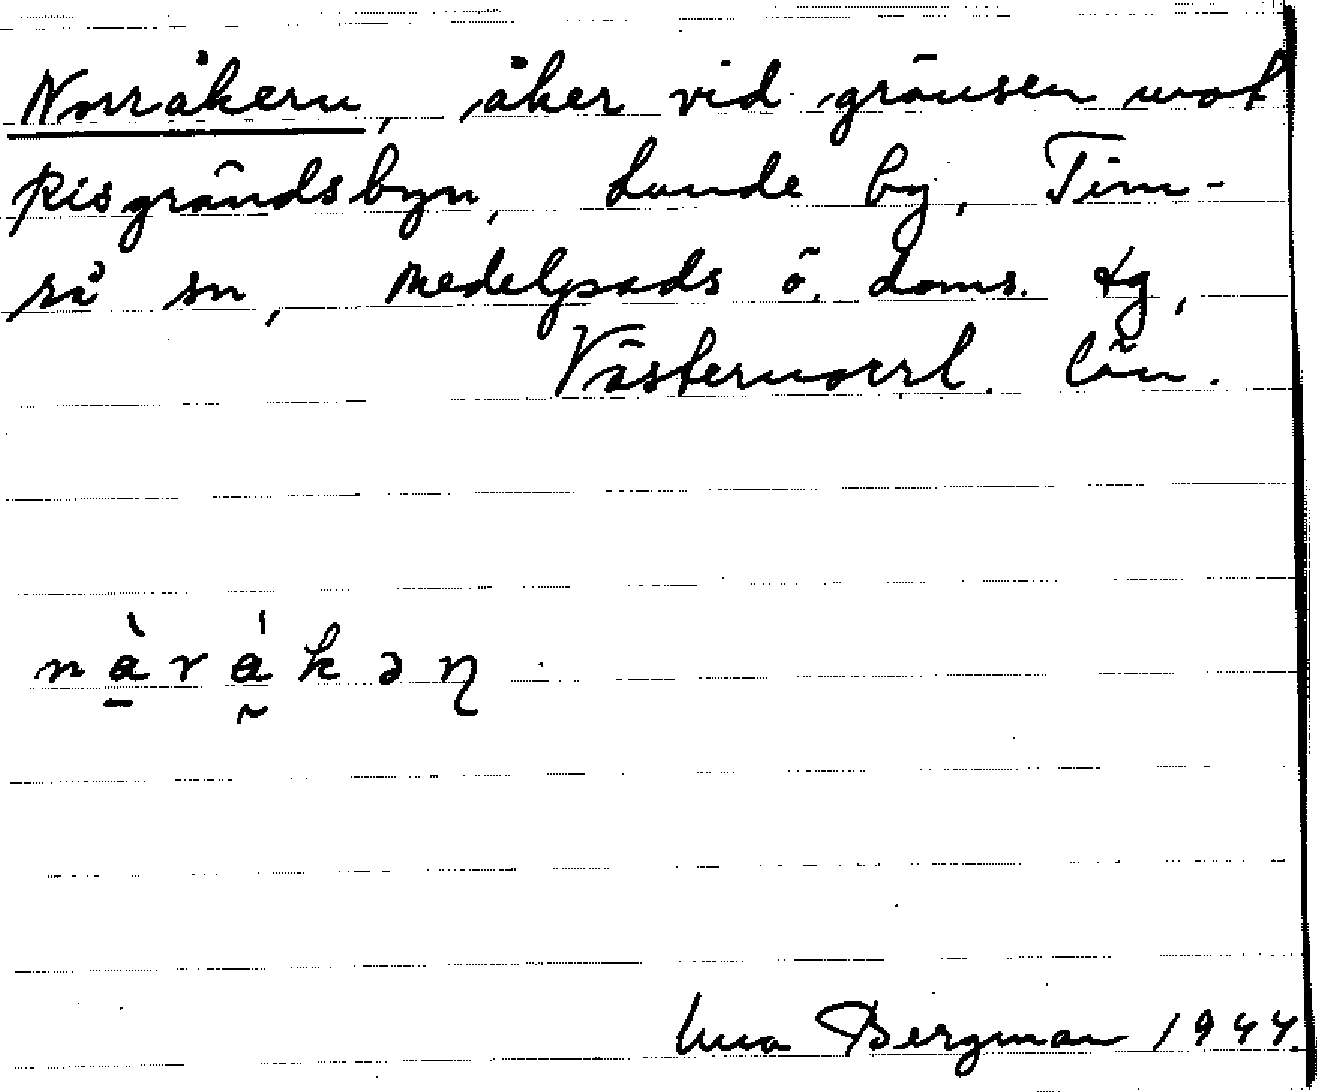 Norråkern, åker vid gränsen mot
Risgrändsbyn, Lunde by, Tim-
rå sn, Medelpads ö. doms. tg,
Västernorrl. län.
nàrákəɳ
Una Bergman 1944.